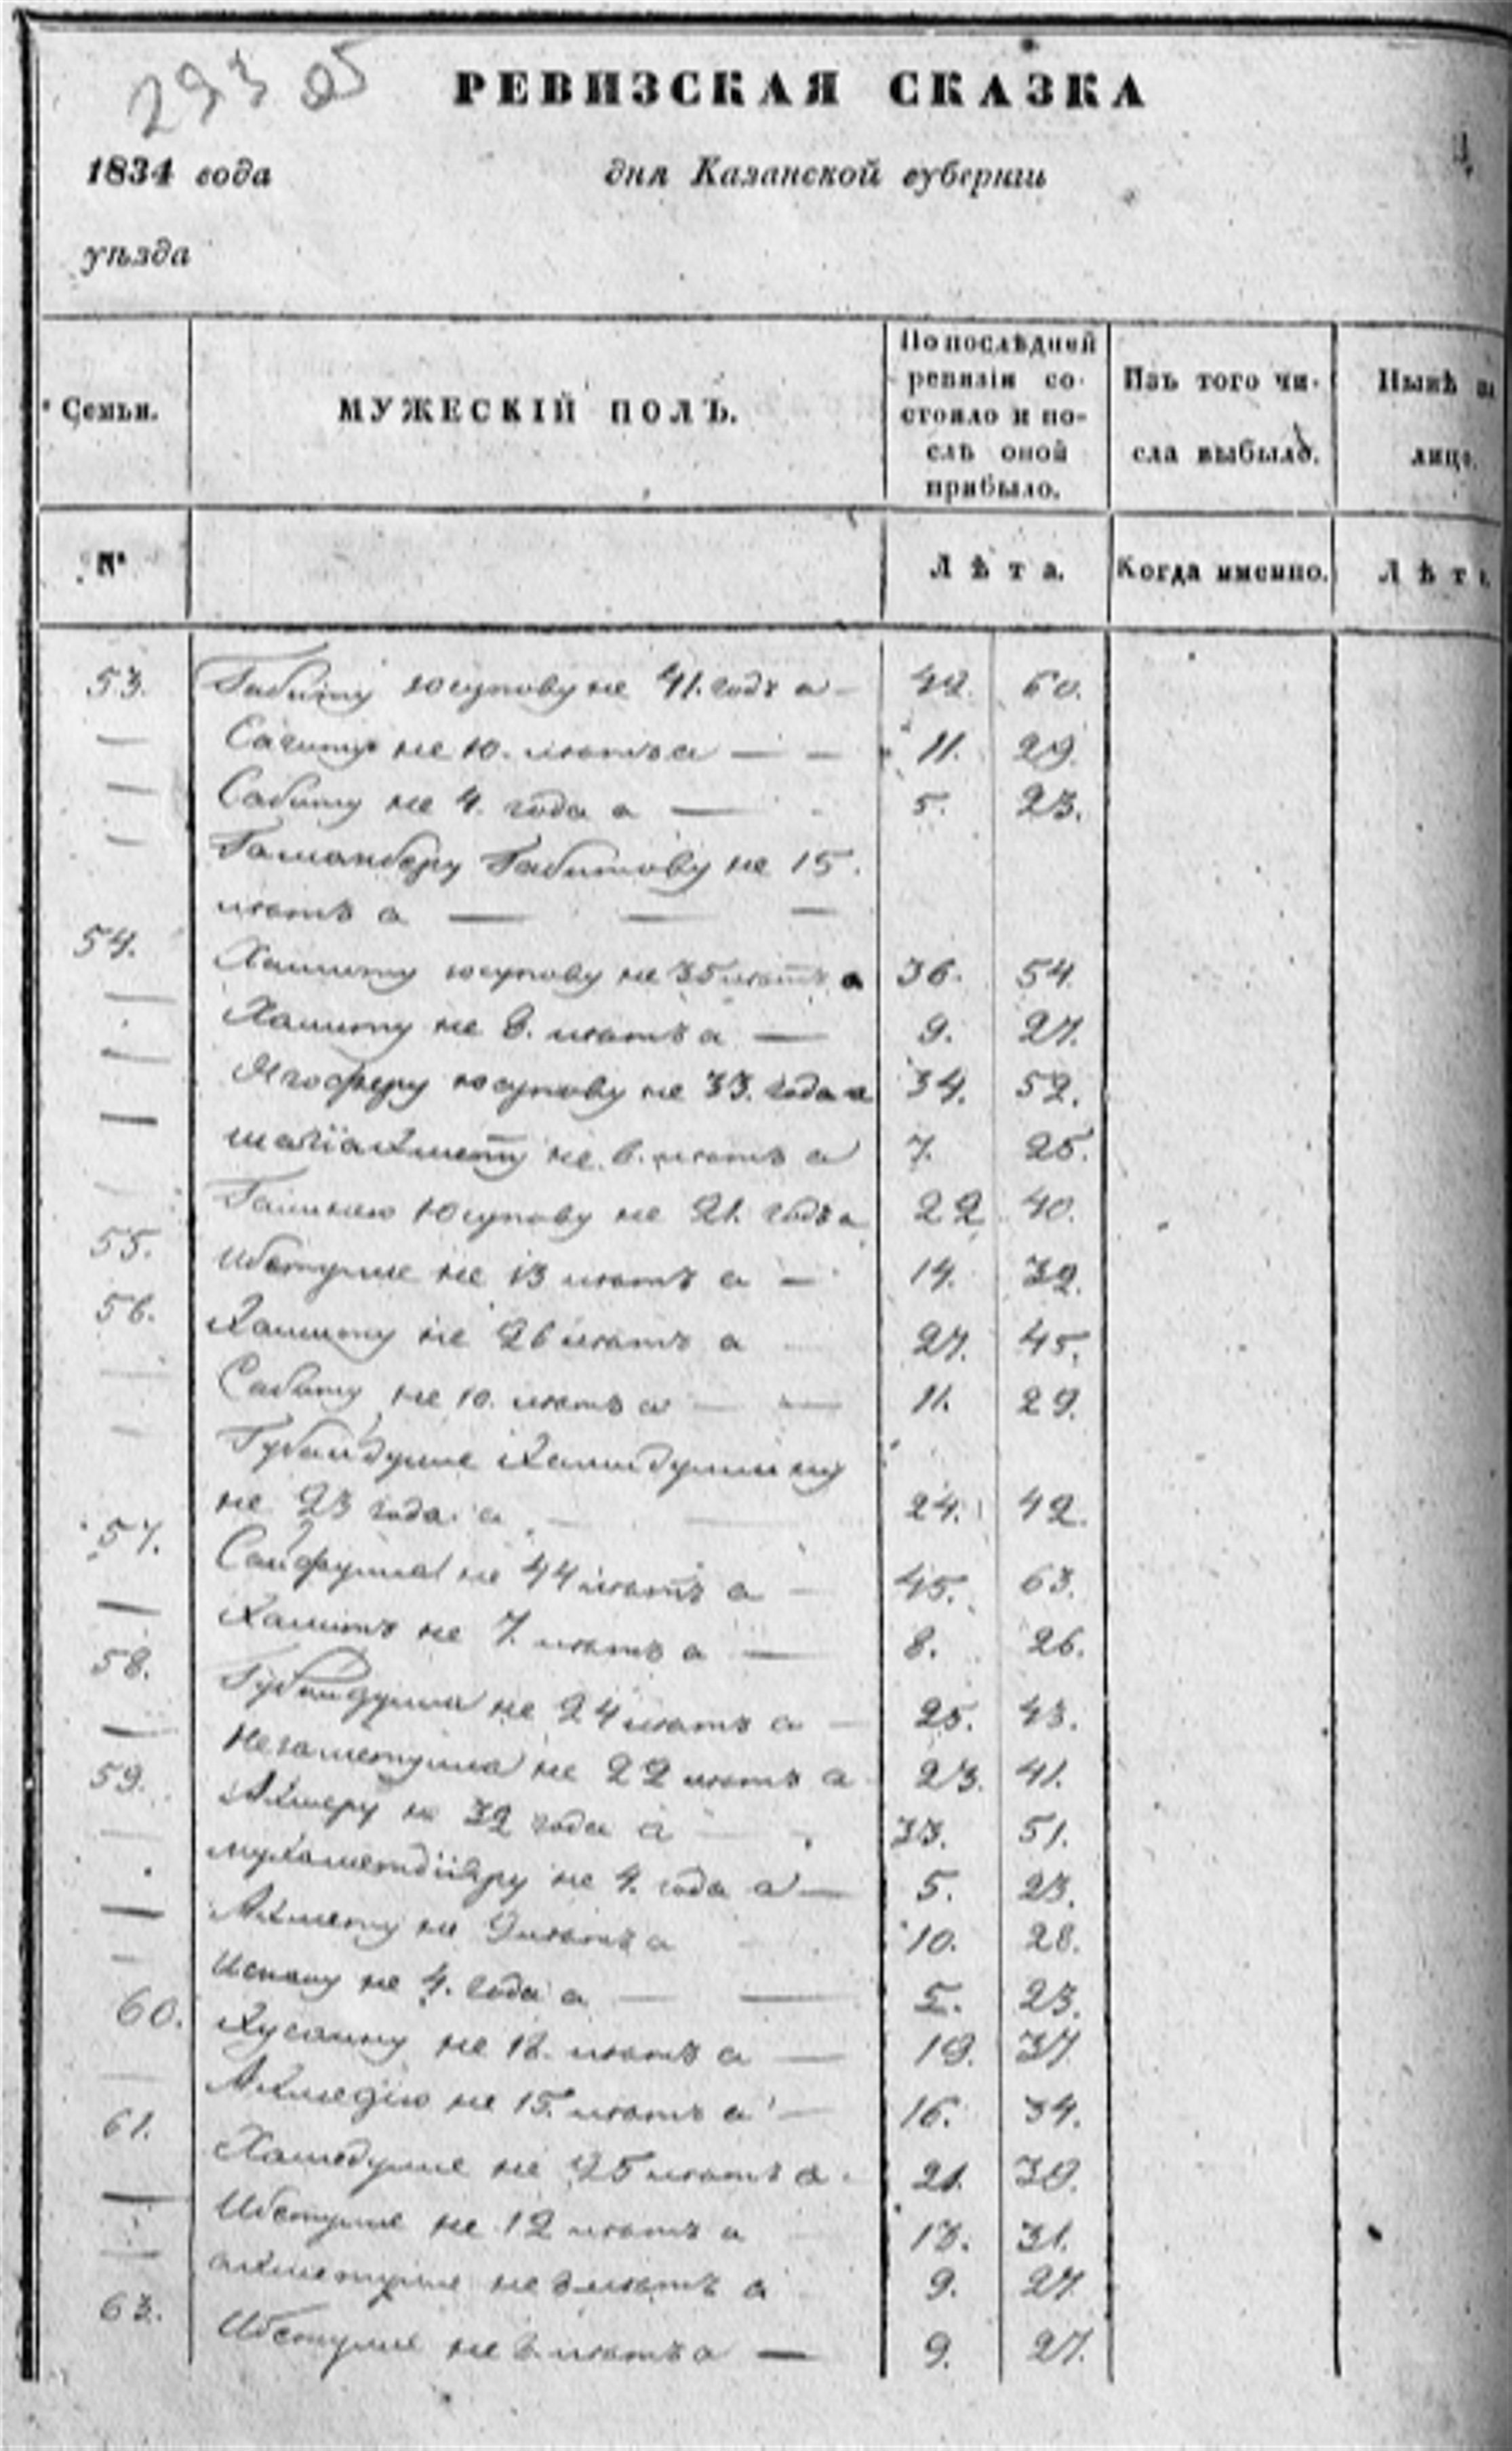 293 об
РЕВИЗСКАЯ СКАЗКА
1834 года дня Казанской губерніи
уѣзда
Семьи. МУЖЕСКІЙ ПОЛЪ. По послѣдней ревизіи состояло и послѣ оной прибыло. Изъ того числа выбыло. Нынѣ на лицо.
№ Лѣта. Когда именно. Лѣта.
53. Габиту Юсупову не 41. годъ а 42. 60.
Сагиту не 10. лѣтъ а 11. 29.
Сабиту не 4. года а 5. 23.
Габитову не 15.
лѣтъ а
54. Хамиту Юсупову не 35 лѣтъ а 36. 54.
Хамиту не 8. лѣтъ а 9. 27.
Ягоферу Юсупову не 33. года а 34. 52.
Шагіахмету не 6. лѣтъ а 7. 25.
Юсупову не 21. годъ а 22 40.
55. не 13 лѣтъ а 14. 32.
56. Хамиту не 26 лѣтъ а 27. 45.
Сабиту не 10. лѣтъ а 11. 29.
Губайдулле
не 23 года а 24. 42.
57. Сайфулла не 44 лѣтъ а 45. 63.
Хамитъ не 7. лѣтъ а 8. 26.
58. Губайдулла не 24 лѣтъ а 25. 43.
Незаметулла не 22 лѣтъ а 23. 41.
59. не 32 года а 33. 51.
Мухаметдіяру не 4. года а 5. 23.
Ахмету не 9 лѣтъ а 10. 28.
не 4. года а 5. 23.
60. Хусаину не 18. лѣтъ а 19. 37.
Ахмедію не 15. лѣтъ а 16. 34.
61. не лѣтъ а 21. 39.
не 12 лѣтъ а 13. 31.
Ахметулле не 8 лѣтъ а 9. 27.
63. не 8. лѣтъ а 9. 27.